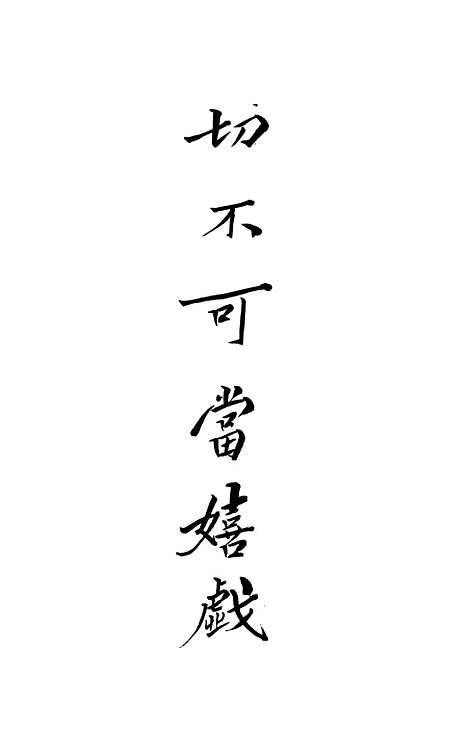 切不可當嬉戲